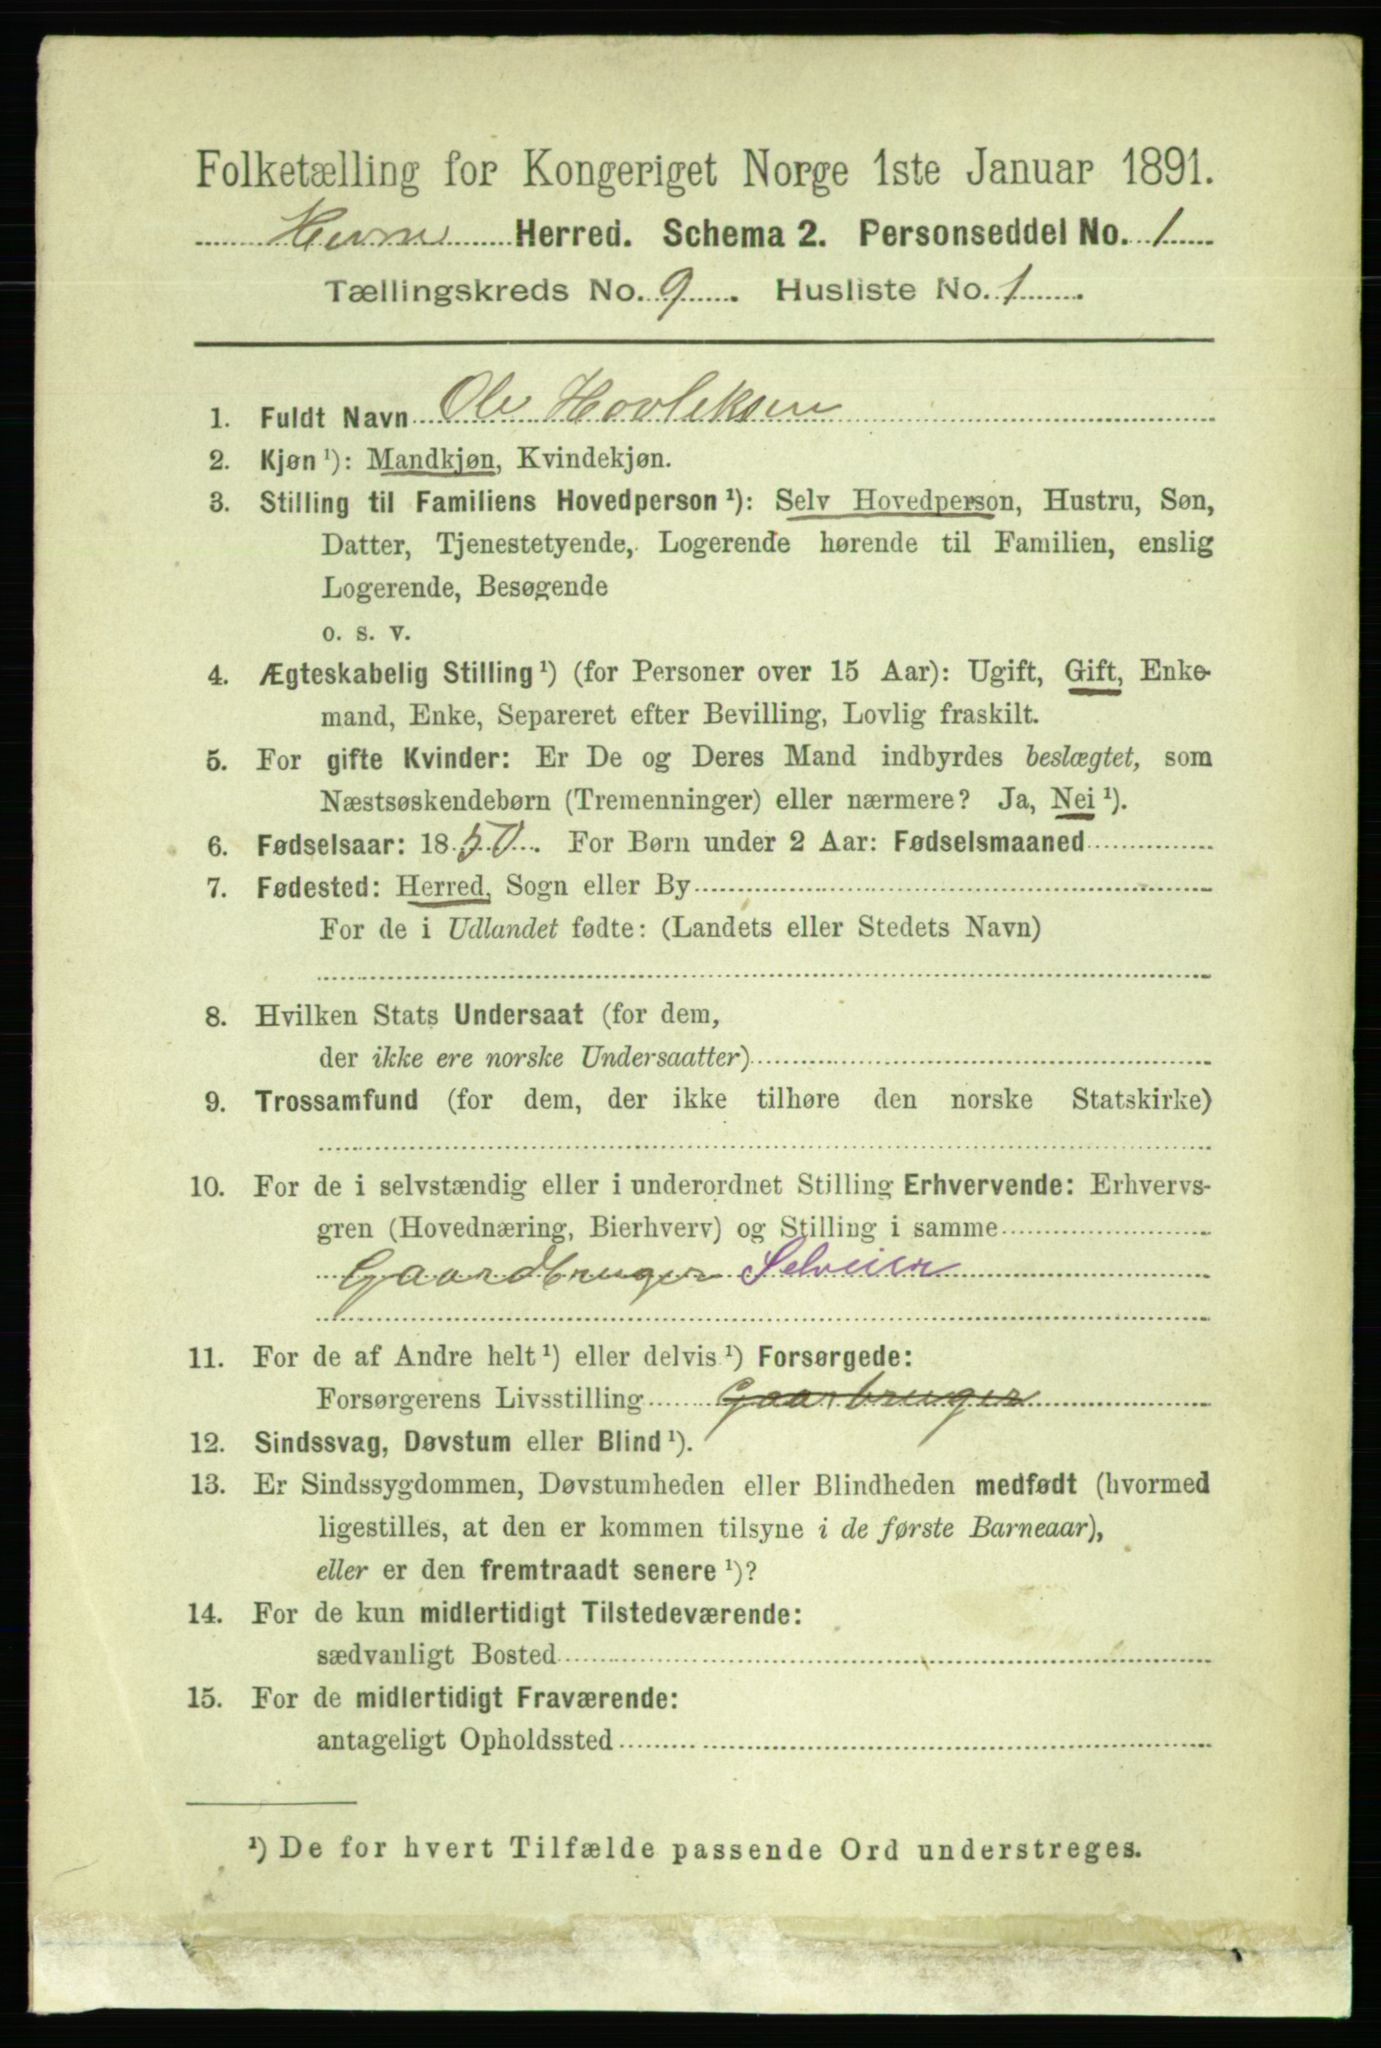 Folketælling for Kongeriget Norge 1ste Januar 1891.
Hevne Herred. Schema 2. Personseddel No. 1
Tællingskreds No. 9. Husliste No. 1.
1. Fuldt Navn Ole Hovleksen
2. Kjøn ¹): Mandkjøn, Kvindekjøn.
3. Stilling til Familiens Hovedperson ¹): Selv Hovedperson, Hustru, Søn,
Datter, Tjenestetyende, Logerende hørende til Familien, enslig
Logerende, Besøgende
o. s. v.
4. Ægteskabelig Stilling ¹) (for Personer over 15 Aar): Ugift, Gift, Enke-
mand, Enke, Separeret efter Bevilling, Lovlig fraskilt.
5. For gifte Kvinder: Er De og Deres Mand indbyrdes beslægtet, som
Næstsøskendebørn (Tremenninger) eller nærmere? Ja, Nei ¹).
6. Fødselsaar: 1850. For Børn under 2 Aar: Fødselsmaaned
7. Fødested: Herred, Sogn eller By
For de i Udlandet fødte: (Landets eller Stedets Navn)
8. Hvilken Stats Undersaat (for dem,
der ikke ere norske Undersaatter)
9. Trossamfund (for dem, der ikke tilhøre den norske Statskirke)
10. For de i selvstændig eller i underordnet Stilling Erhvervende: Erhvervs-
gren (Hovednæring, Bierhverv) og Stilling i samme
Gaardbruger Selveier
11. For de af Andre helt ¹) eller delvis ¹) Forsørgede:
Forsørgerens Livsstilling Gaarbruger
12. Sindssvag, Døvstum eller Blind ¹).
13. Er Sindssygdommen, Døvstumheden eller Blindheden medfødt (hvormed
ligestilles, at den er kommen tilsyne i de første Barneaar),
eller er den fremtraadt senere ¹)?
14. For de kun midlertidigt Tilstedeværende:
sædvanligt Bosted
15. For de midlertidigt Fraværende:
antageligt Opholdssted
¹) De for hvert Tilfælde passende Ord understreges.